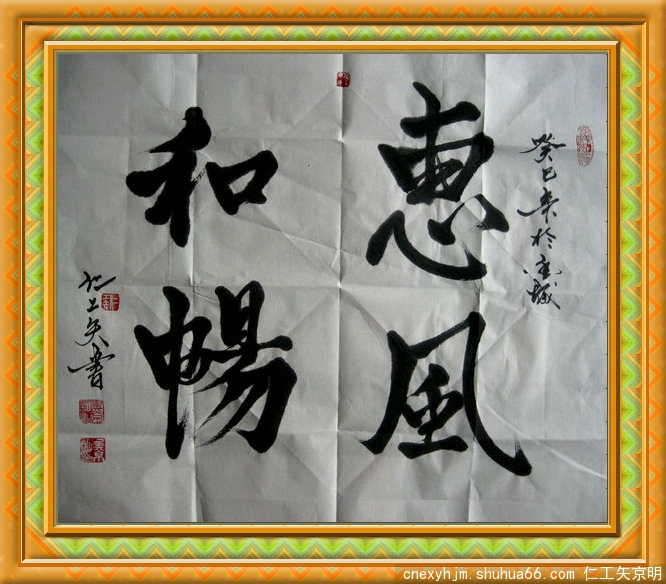 癸巳於城
惠風
和暢
仁工矢書
cnexyhjm.shuhua66.com 仁工矢京明